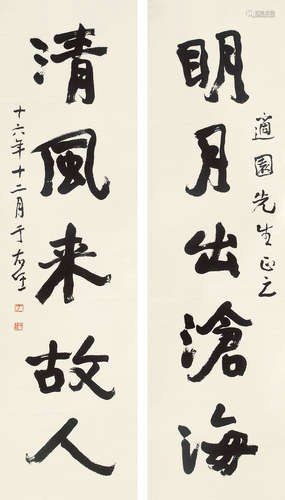 適園先生正之
明月出滄海
清風来故人
十六年十二月于右任